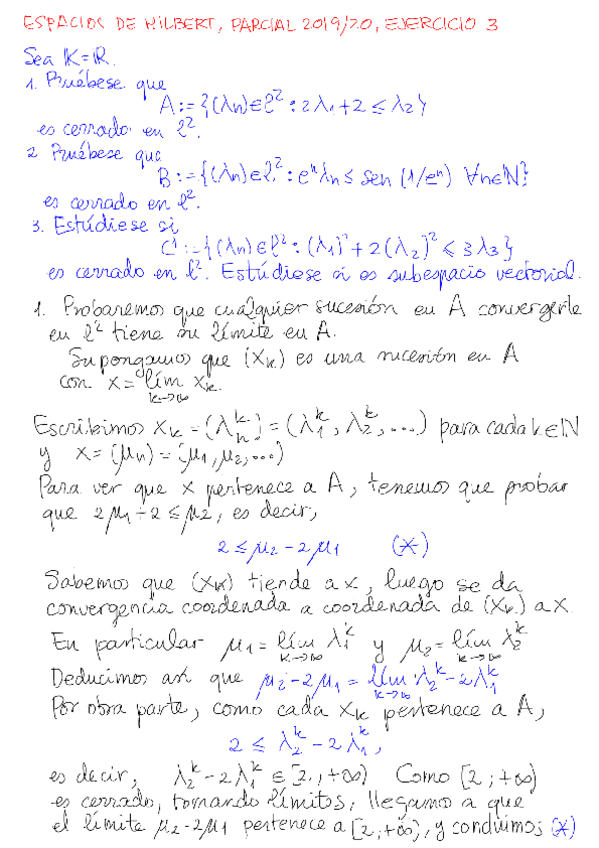 ESPACIOS DE HILBERT, PARCIAL 2019/20, EJERCICIO 3
Sea K=ℝ.
1. Pruébese que
A := {(λn)∈ℓ² : 2λ1+2 ≤ λ2}
es cerrado en ℓ².
2 Pruébese que
B := {(λn)∈ℓ² : eⁿλn ≤ sen (1/eⁿ) ∀n∈ℕ}
es cerrado en ℓ².
3. Estúdiese si
C := {(λn)∈ℓ² : (λ1)² + 2(λ2)² ≤ 3λ3}
es cerrado en ℓ². Estúdiese si es subespacio vectorial.
1. Probaremos que cualquier sucesión en A convergente
en ℓ² tiene su límite en A.
Supongamos que (xk) es una sucesión en A
con x = lím xk.
k→∞
Escribimos xk = (λn^k) = (λ1^k, λ2^k, ...) para cada k∈ℕ
y x = (μn) = (μ1, μ2, ...)
Para ver que x pertenece a A, tenemos que probar
que 2μ1 + 2 ≤ μ2, es decir,
2 ≤ μ2 - 2μ1 (*)
Sabemos que (xk) tiende a x, luego se da
convergencia coordenada a coordenada de (xk) a x.
En particular μ1 = lím λ1^k y μ2 = lím λ2^k
k→∞ k→∞
Deducimos así que μ2 - 2μ1 = lím λ2^k - 2λ1^k
k→∞
Por otra parte, como cada xk pertenece a A,
2 ≤ λ2^k - 2λ1^k,
es decir, λ2^k - 2λ1^k ∈ [2, +∞) Como [2, +∞)
es cerrado, tomando límites, llegamos a que
el límite μ2 - 2μ1 pertenece a [2, +∞), y concluimos (*)